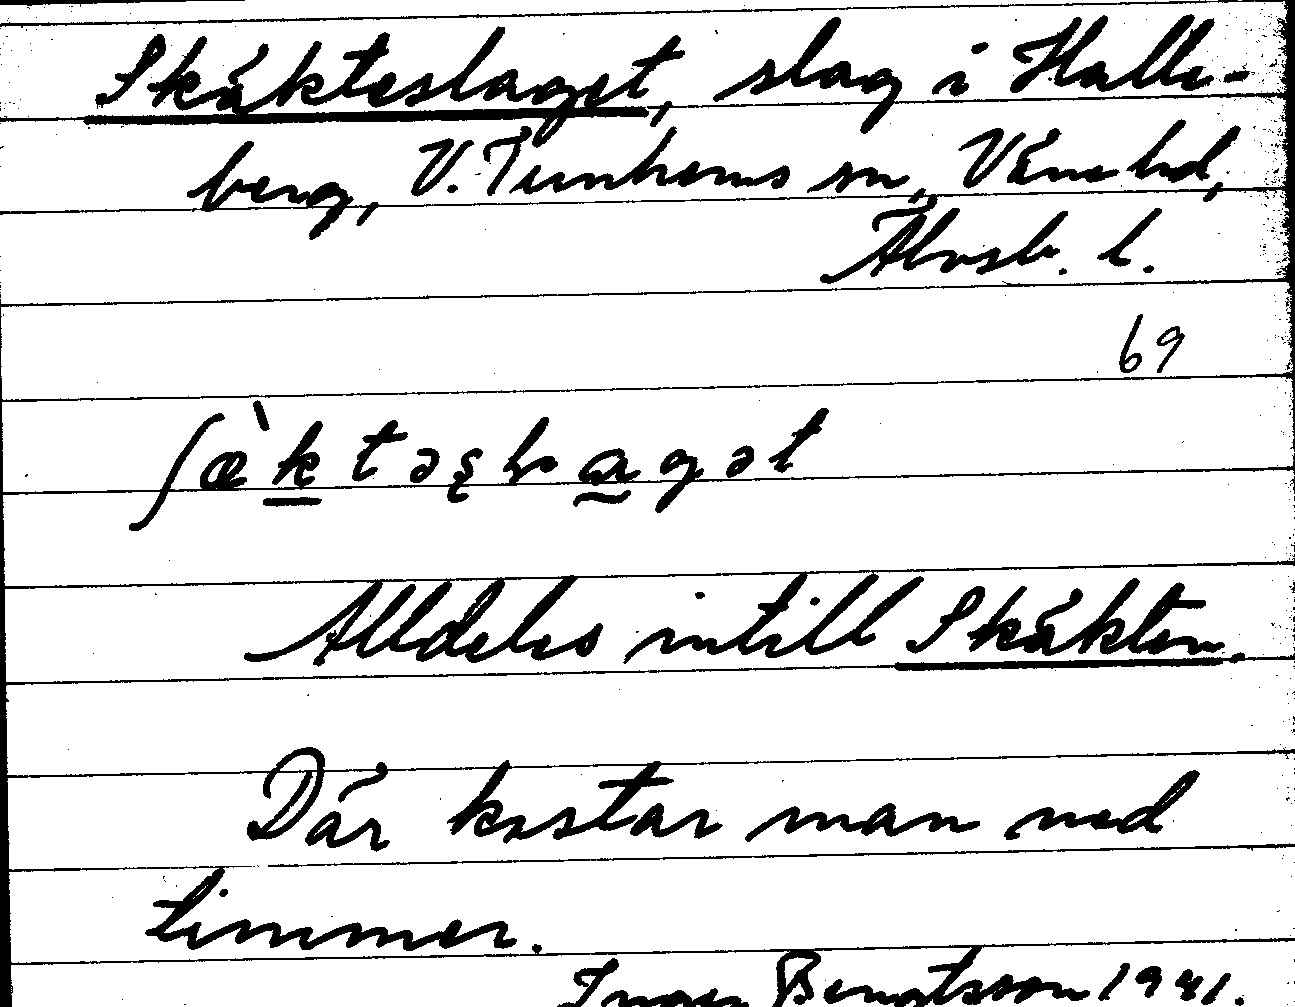 Skäkteslaget, slag i Halle-
berg, V. Tunhems sn, Väne hd,
Älvsb. l.
69
ʃæ̀ktəslagət
Alldeles intill Skäkten.
Där kastar man ned
timmer.
Bengtsson 1941.